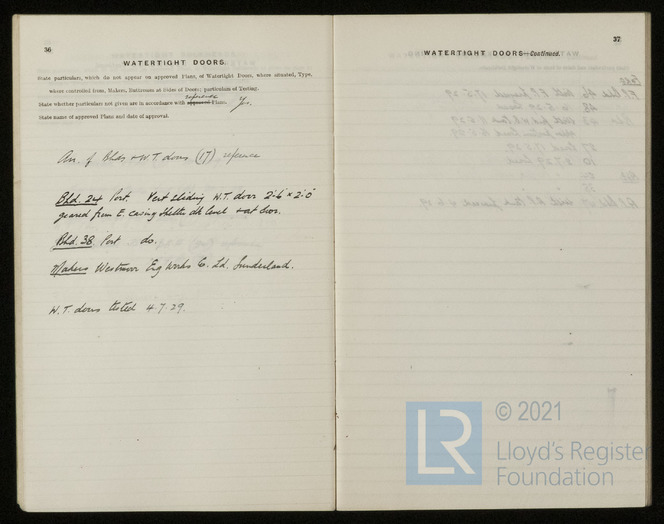 36
WATERTIGHT DOORS.
State particulars, which do not appear on approved Plans, of Watertight Doors, where situated, Type,
where controlled from, Makers, Batterness at Sides of Doors; particulars of Testing.
reference
State whether particulars not given are in accordance with approved Plans. Yes.
State name of approved Plans and date of approval.
Arr. of Bhds & W.T. doors (17) reference
Bhd. 24 Port. Vert sliding W.T. door 2'-6" x 2'-0"
geared from E. casing shelter dk level & at door.
Bhd. 38 Port do.
Makers Westmoor Eng Works Co. Ld. Sunderland.
W.T. doors tested 4.7.29.
37
WATERTIGHT DOORS—Continued.
LR
© 2021
Lloyd's Register
Foundation